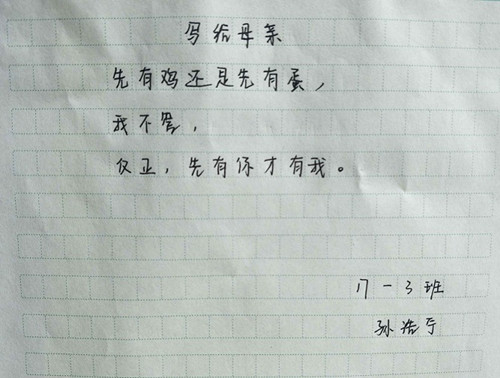 写给母亲
先有鸡还是先有蛋,
我不管,
仅正,先有你才有我。
17-3班
孙浩宁